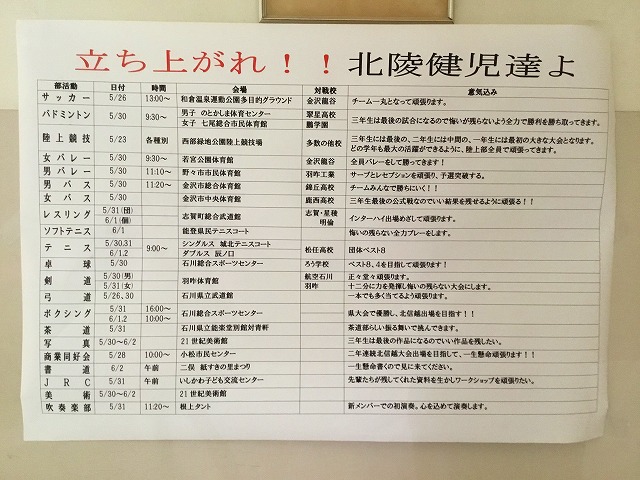 立ち上がれ！！北陵健児達よ
部活動 日付 時間 会場 対戦校 意気込み
サッカー 5/26 13:00～ 和倉温泉運動公園多目的グラウンド 金沢龍谷 チーム一丸となって頑張ります。
バドミントン 5/30 9:30～ 男子 のとかしま体育センター 翠星高校 三年生は最後の試合になるので悔いが残らないよう全力で勝利を勝ち取ってきます。
女子 七尾総合市民体育館 鵬学園
陸上競技 5/23 各種別 西部緑地公園陸上競技場 多数の他校 三年生には最後の、二年生には中間の、一年生には最初の大きな大会となります。
どの学年も最大の活躍ができるように、陸上部全員で頑張ってきます。
女バレー 5/30 9:30～ 若宮公園体育館 金沢龍谷 全員バレーをして勝ってきます！
男バレー 5/30 11:10～ 野々市市民体育館 羽咋工業 サーブとレセプションを頑張り、予選突破する。
男バス 5/30 11:20～ 金沢市総合体育館 錦丘高校 チームみんなで勝ちにいく！！
女バス 5/30 金沢市中央体育館 鹿西高校 三年生最後の公式戦なのでいい結果を残せるように頑張る！！
レスリング 5/31(団) 志賀町総合武道館 志賀・星稜 インターハイ出場めざして頑張ります。
6/1(個) 明倫
ソフトテニス 6/1 能登県民テニスコート 悔いの残らない全力プレーをします。
テニス 5/30,31 9:00～ シングルス 城北テニスコート 松任高校 団体ベスト8
6/1.2 ダブルス 辰ノ口
卓球 5/30 石川総合スポーツセンター ろう学校 ベスト8、4を目指して頑張ります！
剣道 5/30(男) 羽咋体育館 航空石川 正々堂々頑張ります。
5/31(女) 羽咋 十二分に力を発揮し悔いの残らない大会にします。
弓道 5/26、30 石川県立武道館 一本でも多く当てるよう頑張ります。
ボクシング 5/31 16:00～ 石川総合スポーツセンター 県大会で優勝し、北信越出場を目指す！！
6/1.2 10:00～
茶道 5/31 石川県立能楽堂別館対青軒 茶道部らしい振る舞いで挑んできます。
写真 5/30～6/2 21世紀美術館 三年生は最後の作品になるのでいい作品を残したい。
商業同好会 5/28 10:00～ 小松市民センター 二年連続北信越大会出場を目指して、一生懸命頑張ります！！
書道 6/2 午前 二俣 紙すきの里まつり 一生懸命書くので見に来てください。
JRC 5/31 午前 いしかわ子ども交流センター 先輩たちが残してくれた資料を生かしワークショップを頑張りたい。
美術 5/30～6/2 21世紀美術館
吹奏楽部 5/31 11:20～ 根上タント 新メンバーでの初演奏。心を込めて演奏します。